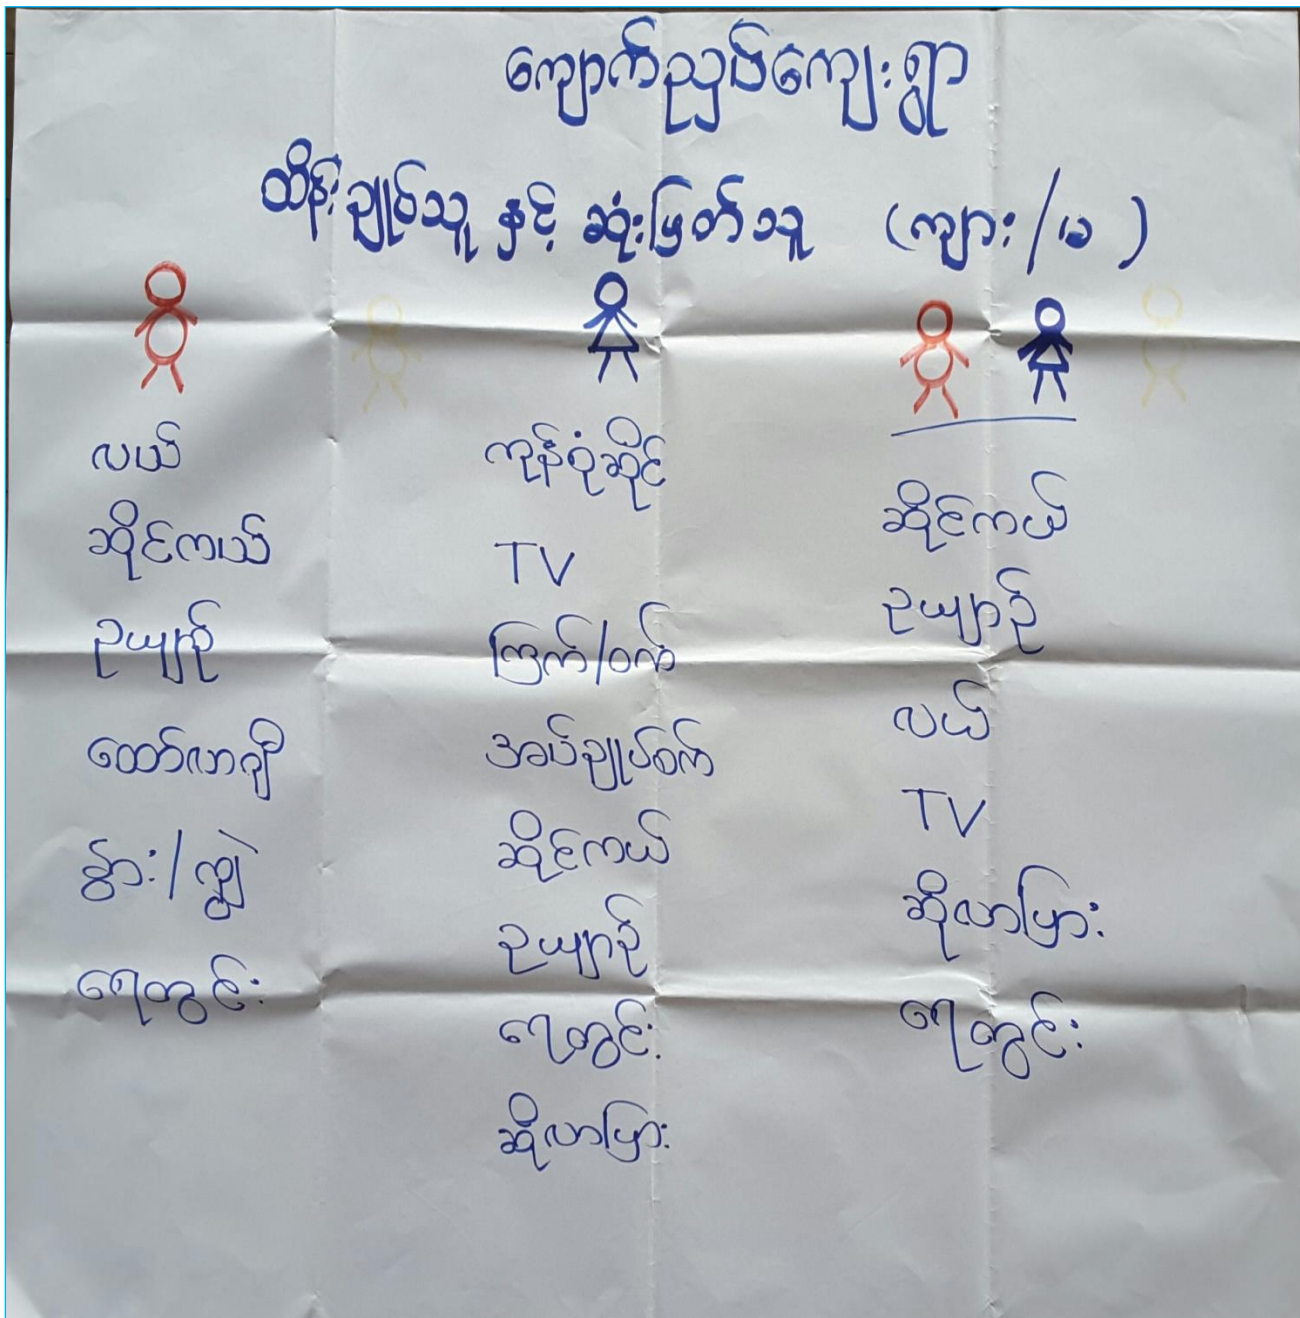 ကျောက်ညှပ်ကျေးရွာ
ထိန်းချုပ်သူ နှင့် ဆုံးဖြတ်သူ (ကျား/မ)
လယ်
ဆိုင်ကယ်
ဥယျာဉ်
ထော်လာဂျီ
နွား/ကျွဲ
ရေတွင်း
ကုန်စုံဆိုင်
TV
ကြက်/ဝက်
အပ်ချုပ်စက်
ဆိုင်ကယ်
ဥယျာဉ်
ရေတွင်း
ဆိုလာပြား
ဆိုင်ကယ်
ဥယျာဉ်
လယ်
TV
ဆိုလာပြား
ရေတွင်း